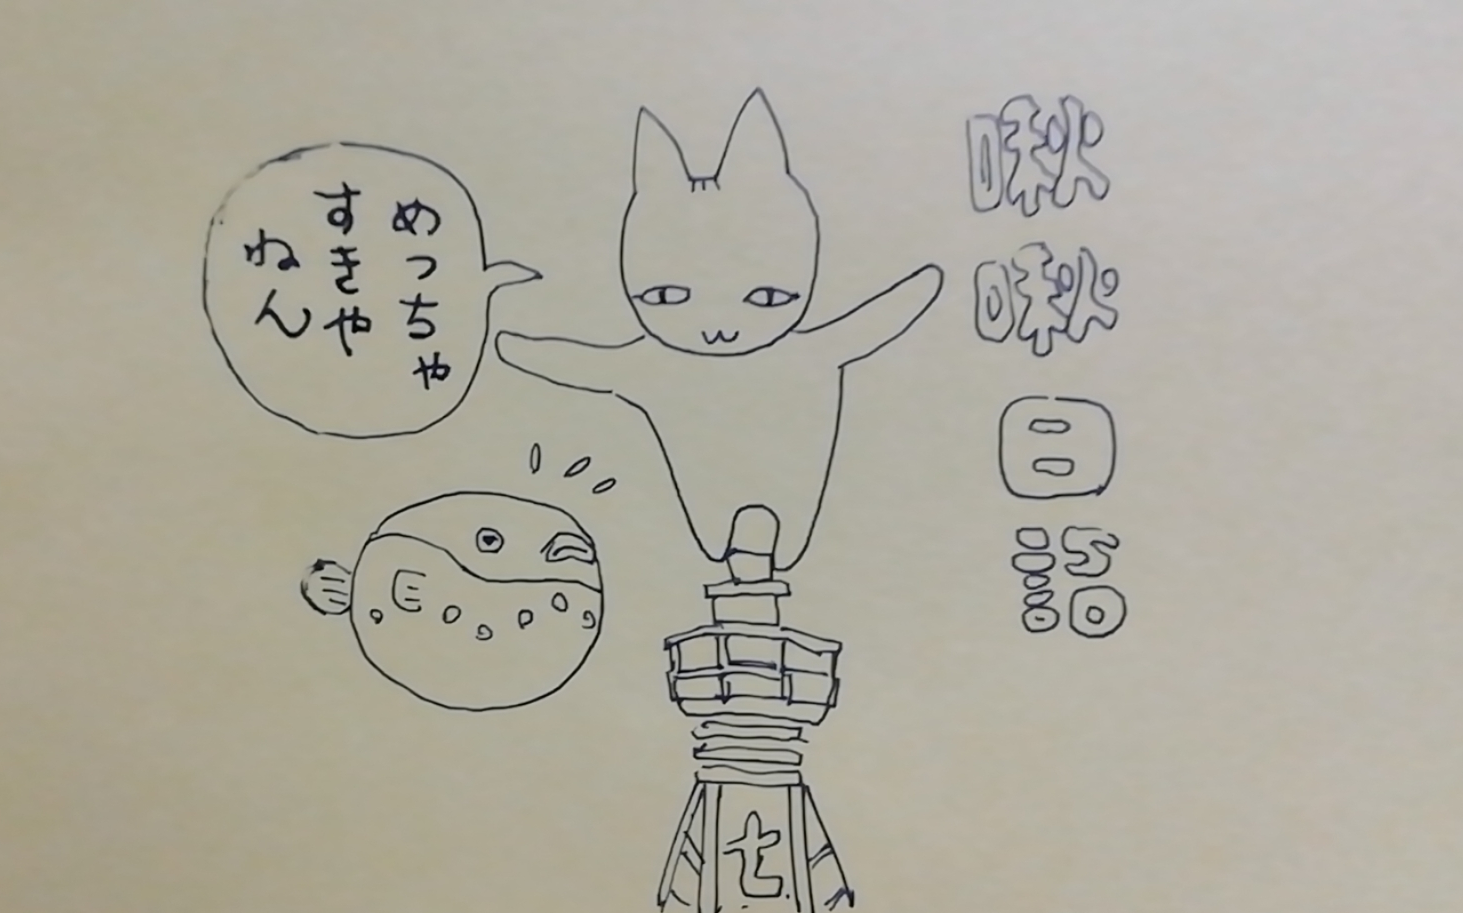 めっちゃ
すきや
ねん
啾啾日語
七